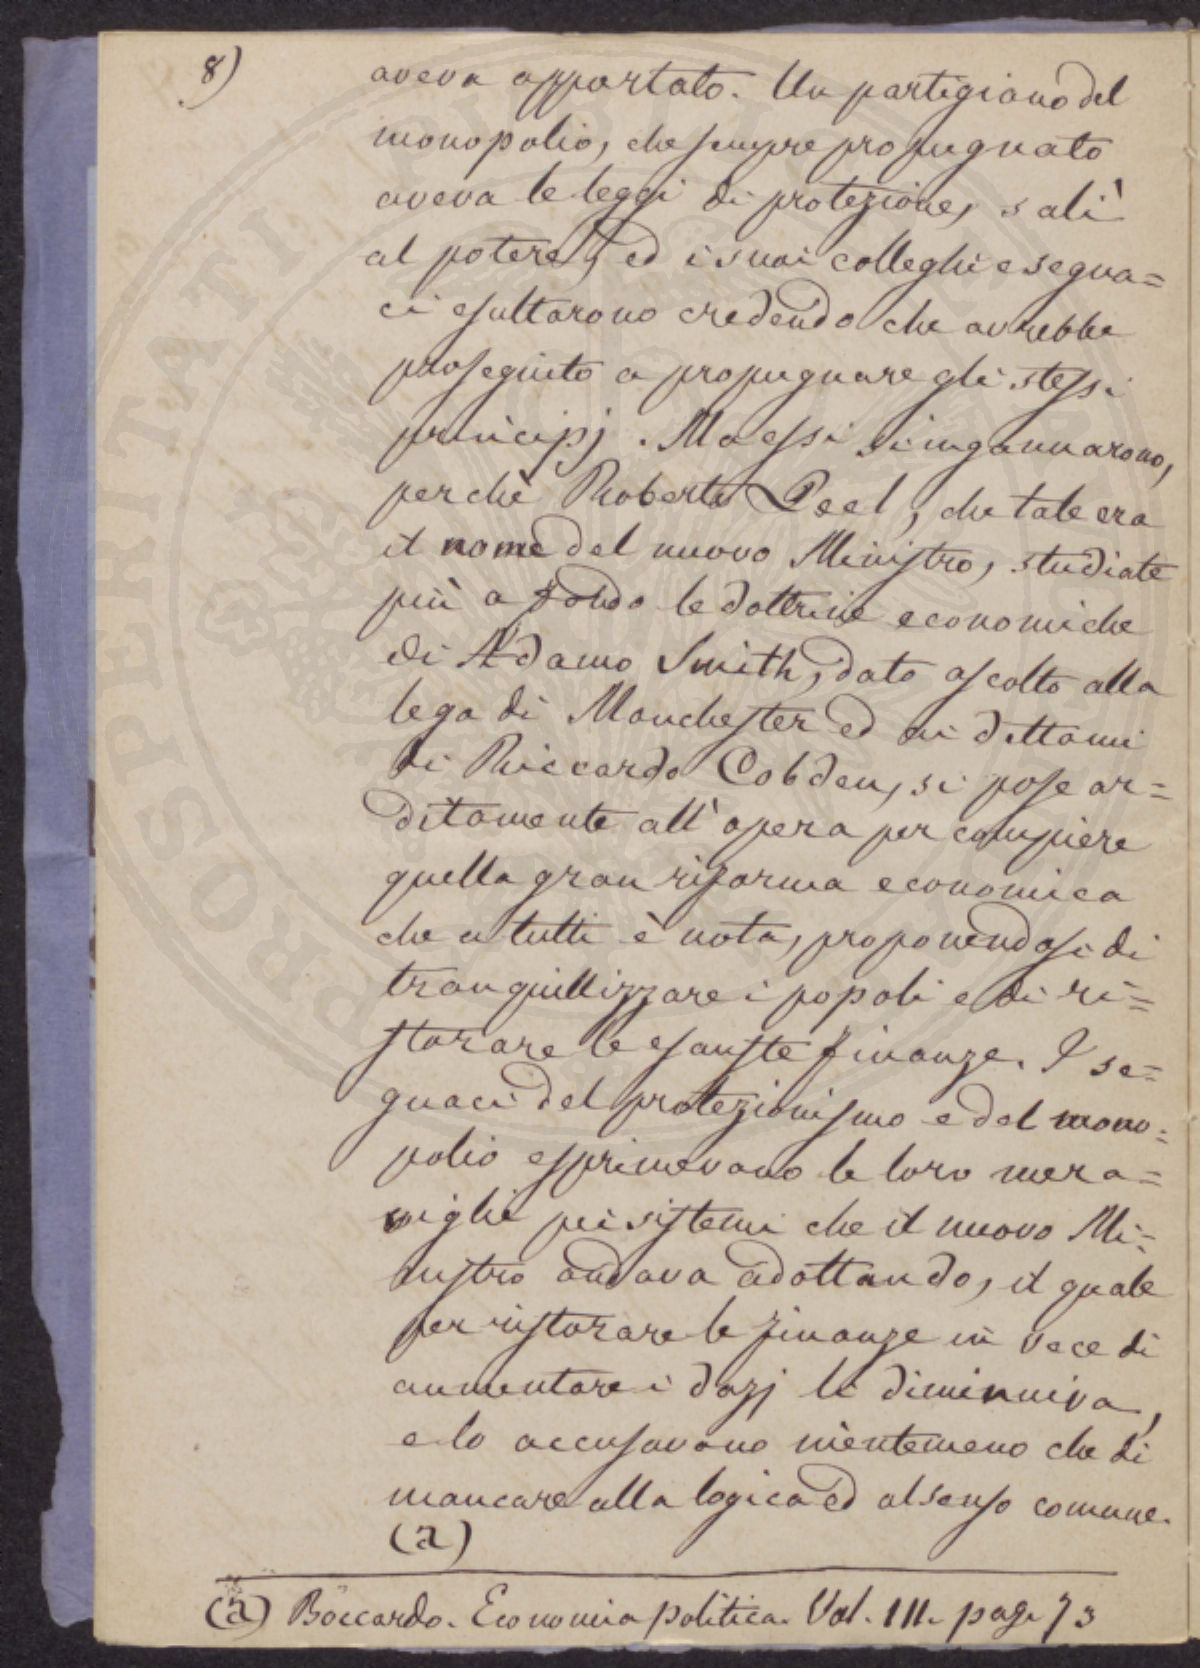 8)
aveva apportato. Un partigiano del
monopolio, che sempre propugnato
aveva le leggi di protezione, salì
al potere, ed i suoi colleghi e segua=
ci esultarono credendo che avrebbe
proseguito a propugnare gli stessi
principj. Ma essi s'ingannarono,
perchè Roberto Peel, che tale era
il nome del nuovo Ministro, studiate
più a fondo le dottrine economiche
di Adamo Smith, dato ascolto alla
lega di Manchester ed ai dettami
di Riccardo Cobden, si pose ar=
ditamente all'opera per compiere
quella gran riforma economica
che a tutti è nota, proponendosi di
tranquillizzare i popoli e di ri=
storare le esauste finanze. I se=
guaci del protezionismo e del mono=
polio esprimevano le loro mera=
viglie pei sistemi che il nuovo Mi=
nistro andava adottando, il quale
per ristorare le finanze in vece di
aumentare i dazj li diminuiva,
e lo accusavano nientemeno che di
mancare alla logica ed al senso comune.
(a)
(a) Boccardo. Economia politica. Vol. III. pag. 73
PROSPERITATI PUBLICAE